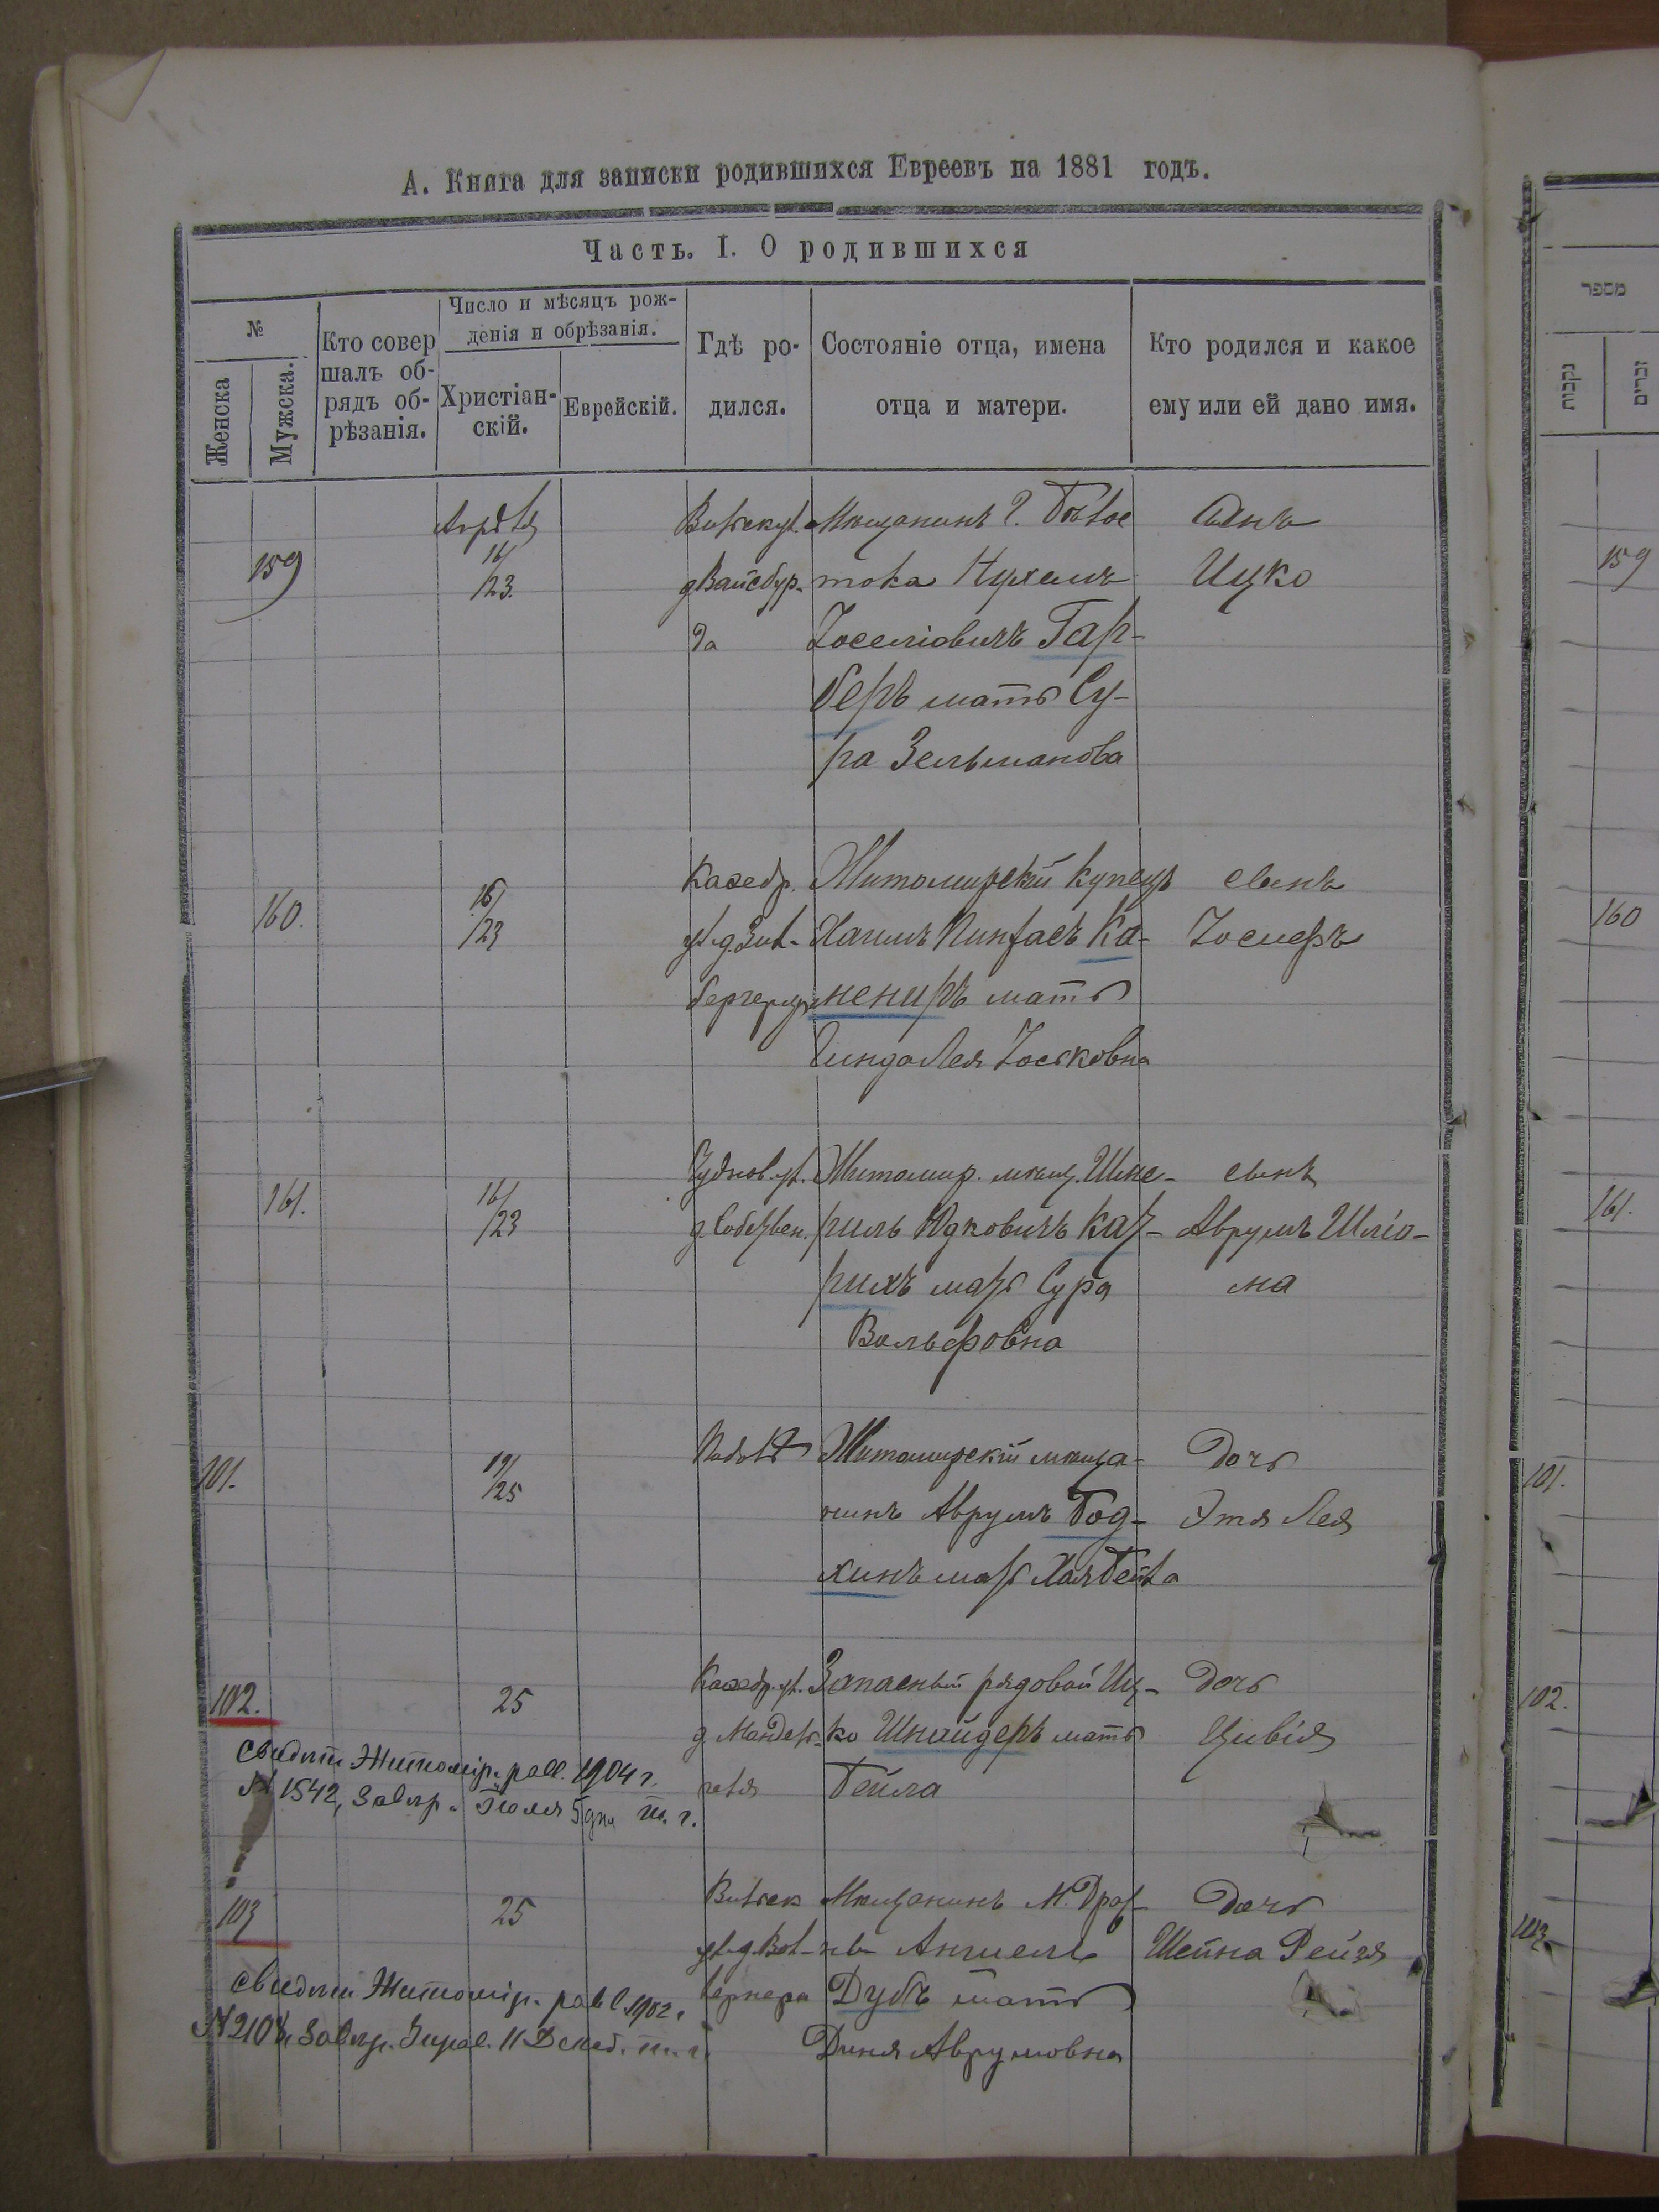 А. Книга для записки родившихся Евреевъ на 1881 годъ.
Часть. I. О родившихся
№
Женска
Мужска.
Кто совер
шалъ об-
рядъ об-
рѣзанія.
Число и мѣсяцъ рож-
денія и обрѣзанія.
Христіан-
скій.
Еврейскій.
Гдѣ ро-
дился.
Состояніе отца, имена
отца и матери.
Кто родился и какое
ему или ей дано имя.
159
Апрѣля
16/
/23.
Вильскул.
д Вайсбур-
да
Мѣщанинъ г. Бѣлос
тока Нухемъ
Іоселіовичъ Гар-
беръ мать Су-
ра Зельманова
Сынъ
Ицко
160.
16/
/23
Каѳедр.
ул. д. Зил-
бергерцъ
Житомирскій купецъ
Хаимъ Пинхасъ Ка-
ненирь мать
Гинда Лея Іоськовна
сынъ
Іосифъ
161.
16/
/23
Чуднов. ул.
д. Собствен.
Житомир. мѣщ. Шне-
риль Юдковичъ Кат-
рихъ мать Сура
Вольфовна
сынъ
Аврумъ Шліо-
ма
101.
19/
/25
Подолѣ
Житомирскій мѣща-
нинъ Аврумъ Бод-
хинъ мать Хая Бейла
Дочь
Этя Лея
102.
25
Каѳедр. ул.
д. Мандель-
Запасный рядовой Иц-
ко Шнайдеръ мать
Бейла
Дочь
Цивія
Свидѣт. Житомір. равв. 1904 г.
№ 1542, Завѣр. Іюля 5 дня т. г.
103
25
Вильск
ул. д. Вол-
Мѣщанинъ М. Драж
нѣ Аншель
Дубъ мать
Диня Аврумовна
Дочь
Шейна Рейзя
Свидѣт. Житомір. рав 1902 г
№ 2108, Завѣр. 11 Декаб. т. г.
מספר
נקבות
זכרים
159
160
161.
101.
102.
103